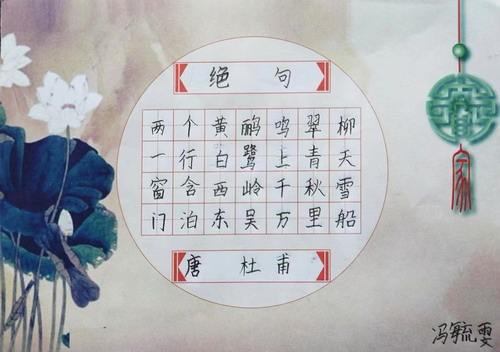 绝句
两个黄鹂鸣翠柳
一行白鹭上青天
窗含西岭千秋雪
门泊东吴万里船
唐 杜甫
冯毓雯